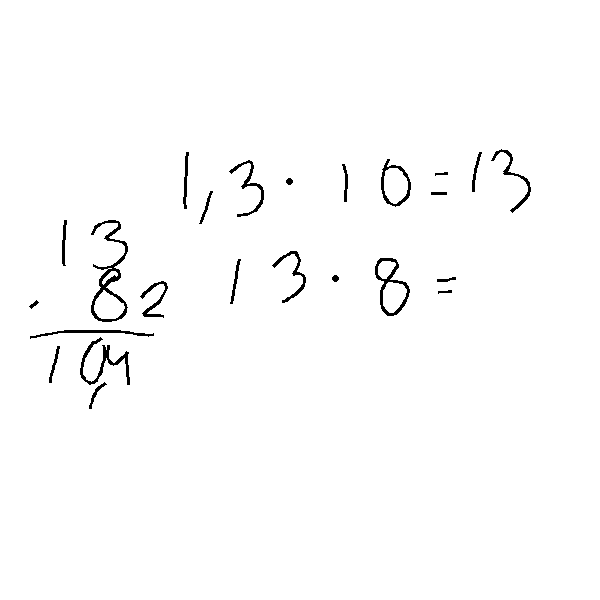 1,3 · 10 = 13
13 · 8 =
13
· 82
10,4